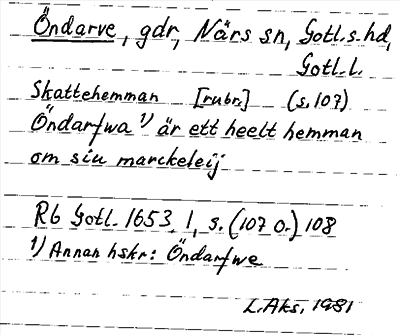 Öndarve, gdr, Närs sn, Gotl.s.hd,
Gotl.l.
Skattehemman [rubr.] (s.107)
Öndarfwa 1) är ett heelt hemman
om siu marckeleij
Rb Gotl. 1653, 1, s. (107 o.) 108
1) Annan hskr: Öndarfwe
L.Aks, 1981